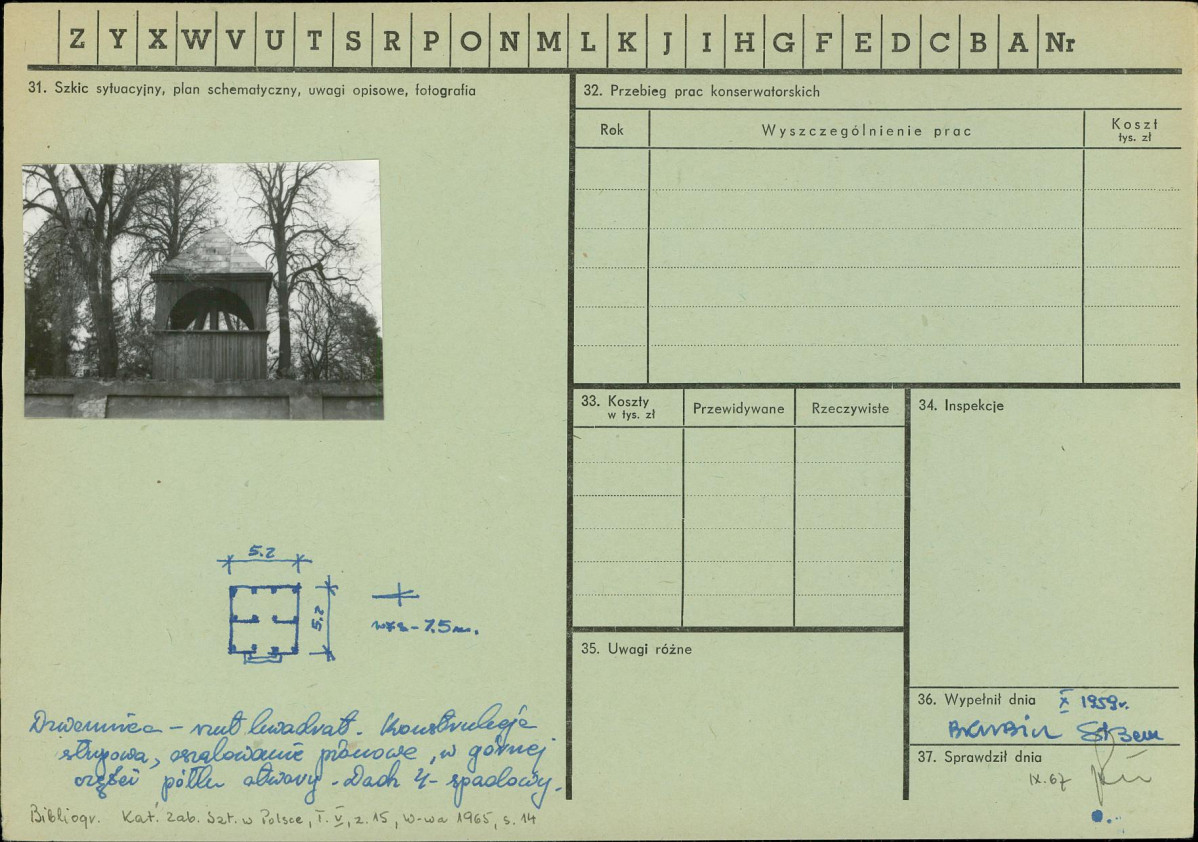 Z Y X W V U T S R P O N M L K J I H G F E D C B A Nr
31. Szkic sytuacyjny, plan schematyczny, uwagi opisowe, fotografia
5.2
5.2
wys - 7.5 m.
Dzwonnica - rzut kwadrat. Konstrukcja
słupowa, oszalowanie pionowe, w górnej
części półkol. otwory. Dach 4-spadowy.
Bibliogr. Kat. Zab. Szt. w Polsce, T. V, z. 15, W-wa 1965, s. 14
32. Przebieg prac konserwatorskich
Rok Wyszczególnienie prac Koszt
tys. zł
33. Koszty
w tys. zł Przewidywane Rzeczywiste
34. Inspekcje
35. Uwagi różne
36. Wypełnił dnia X 1959 r.
37. Sprawdził dnia
IX.67